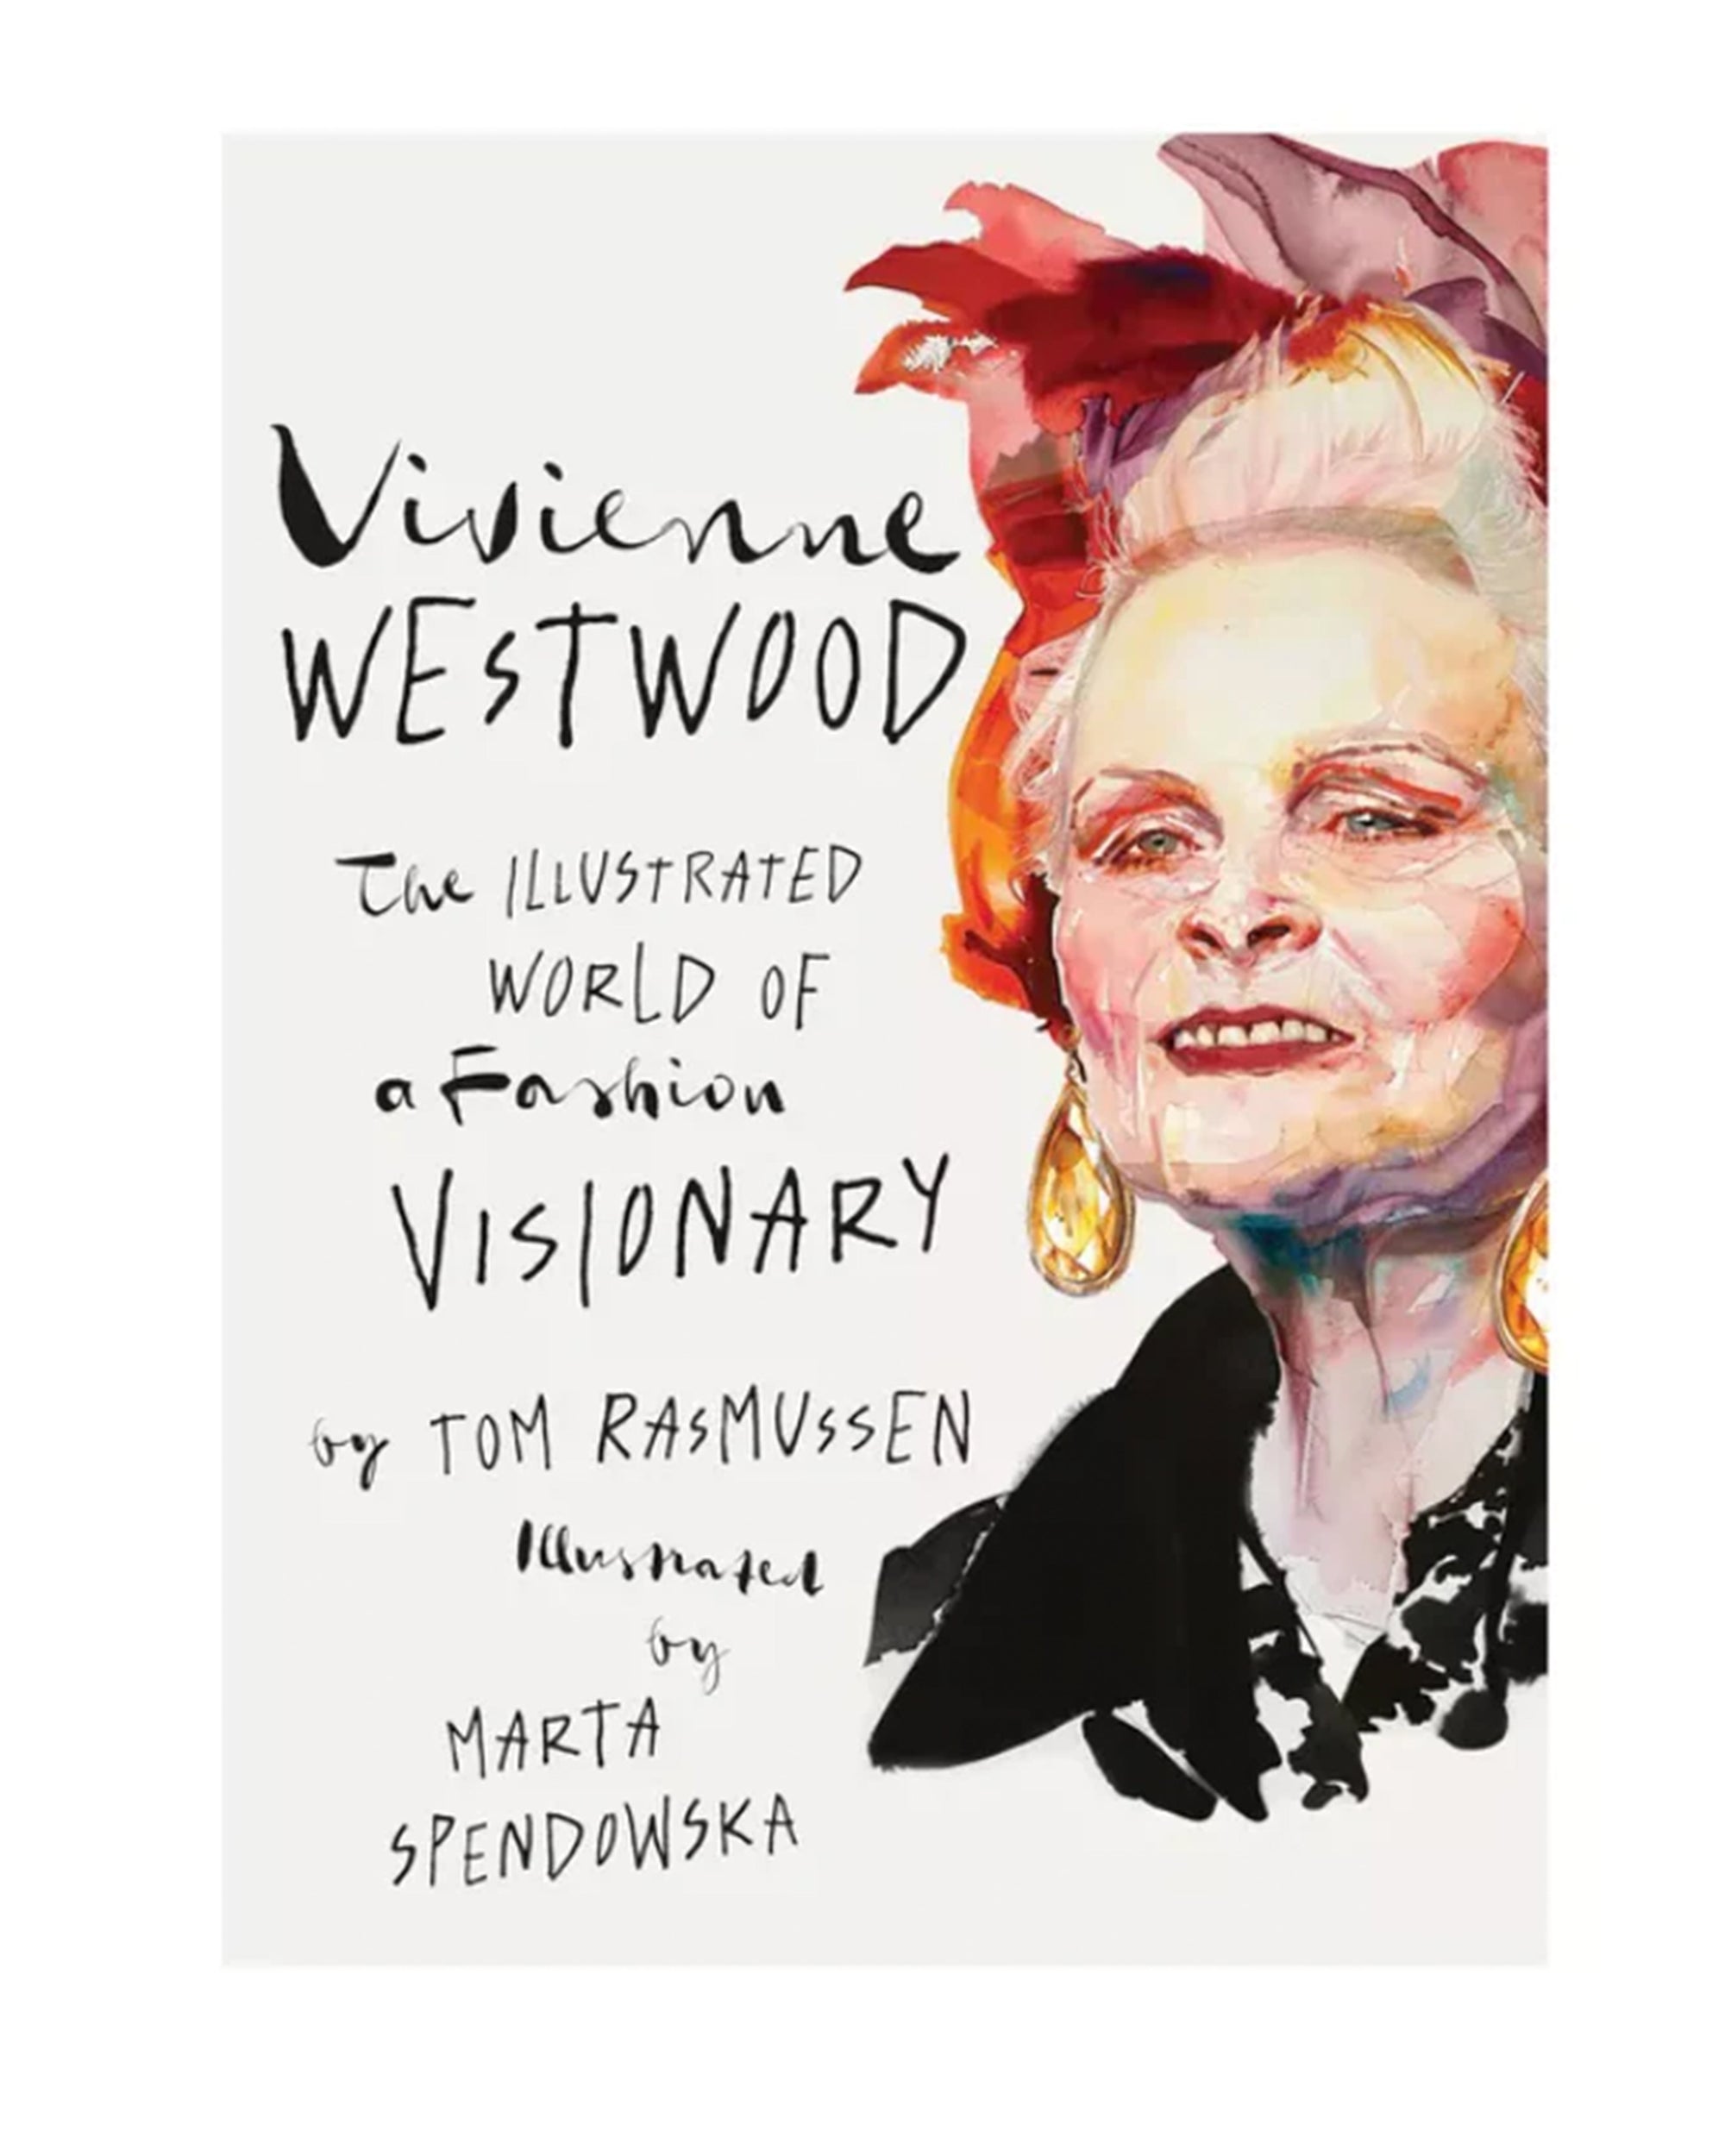 Vivienne
WESTWOOD
The ILLUSTRATED
WORLD OF
a Fashion
VISIONARY
by TOM RASMUSSEN
Illustrated
by
MARTA
SPENDOWSKA